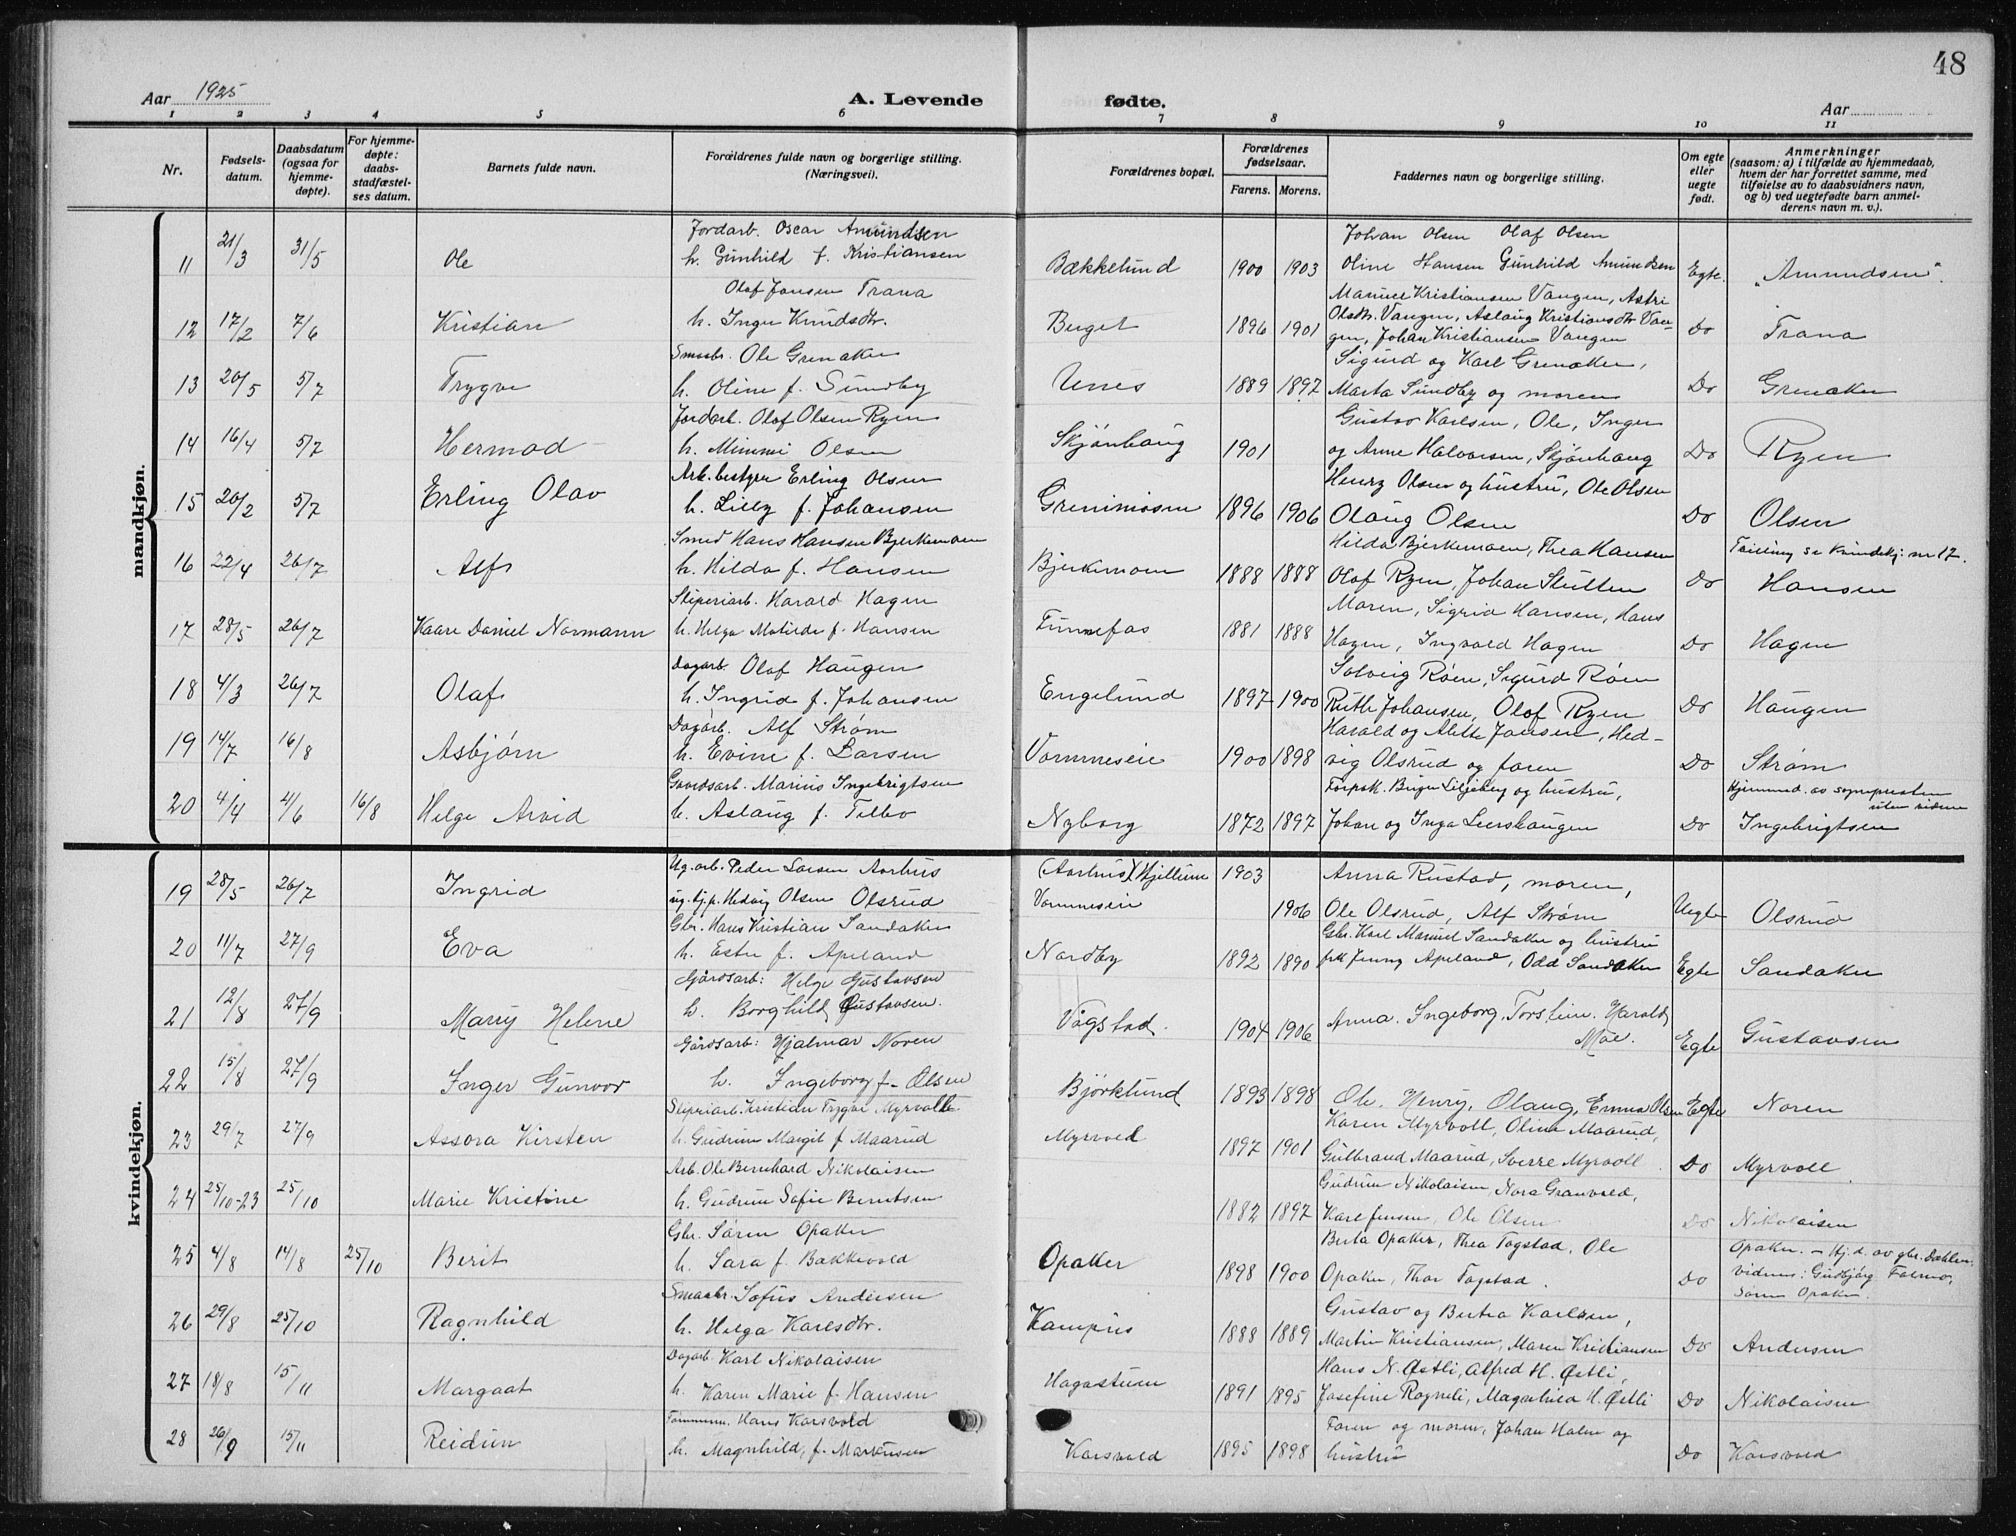 48
Aar 1925
A. Levende
fødte.
Aar
1 2 3 4 5 6 7 8 9 10 11
Nr.
Fødsels-
datum.
Daabsdatum
(ogsaa for
hjemme-
døpte).
For hjemme-
døpte:
daabs-
stadfæstel-
ses datum.
Barnets fulde navn.
Forældrenes fulde navn og borgerlige stilling.
(Næringsvei).
Forældrenes bopæl.
Forældrenes
fødselsaar.
Farens. Morens.
Faddernes navn og borgerlige stilling.
Om egte
eller
uegte
født.
Anmerkninger
(saasom: a) i tilfælde av hjemmedaab,
hvem der har forrettet samme, med
tilføielse av to daabsvidners navn,
og b) ved uegtefødte barn anmel-
derens navn m. v.).
mandkjøn.
Jordarb. Oscar Amundsen Johan Olsen Olaf Olsen
11 21/3 31/5 Ole h. Gunhild f. Kristiansen Bækkelund 1900 1903 Oline Hansen Gunhild Amundsen Egte. "Amundsen".
Olaf Jonsen Trana Manuel Kristiansen Vangen, Astri
12 17/2 7/6 Kristian h. Inga Knudsdtr. Berget 1896 1901 Olsdtr. Vangen, Aslaug Kristiansdtr Van- Do Trana
gen, Johan Kristiansen Vangen
Smaabr. Ole Grenaker Sigurd og Karl Grenaker,
13 20/5 5/7 Trygve h. Oline f. Sundby Unes 1889 1897 Marta Sundby og moren Do Grenaker
Jordarb. Olaf Olsen Ryen Gustav Karlsen, Ole, Inger
14 16/4 5/7 Hermod h. Mimmi Olsen Skjønhaug 1901 og Anne Halvorsen, Skjønhaug Do Ryen
Ark. bestyrer Erling Olsen Henry Olsen og hustru, Ole Olsen
15 20/2 5/7 Erling Olav h. Lilly f. Johansen Grenimosen 1896 1906 Olaug Olsen Do Olsen
Smed Hans Hansen Bjerkemoen Hilda Bjerkemoen, Thea Hansen Tvilling se kvindekj. nr 17.
16 22/4 26/7 Alf h. Hilda f. Hansen Bjerkemoen 1888 1888 Olaf Ryen, Johan Slutten Do Hansen
Sliperiarb. Harald Hagen Moren, Sigrid Hansen, Hans
17 28/5 26/7 Kaare Daniel Normann h. Helga Matilde f. Hansen Funnefos 1881 1888 Hagen, Ingvald Hagen Do Hagen
Dagarb. Olaf Haugen Solveig Røen, Sigurd Røen
18 4/3 26/7 Olaf h. Ingrid f. Johansen Engelund 1897 1900 Ruth Johansen, Olaf Ryen Do Haugen
Dagarb. Alf Strøm Harald og Alette Jansen, Hed-
19 14/7 16/8 Asbjørn h. Evine f. Larsen Vormneseie 1900 1898 vig Olsrud og faren Do Strøm
Gaardsarb. Marius Ingebrigtsen Forpak. Birger Liljeberg og hustru, Hjemmed. av sognepresten
uten vidner
20 4/4 4/6 16/8 Helge Arvid h. Aslaug f. Telbo Nyborg 1872 1897 Johan og Inga Leershaugen Do Ingebrigtsen
kvindekjøn.
Ug. arb. Peder Larsen Aarhus (Aarhus) Hjellum 1903 Anna Rustad, moren,
19 28/5 26/7 Ingrid ug. tj.p. Hedvig Olsen Olsrud Vormneseie 1906 Ole Olsrud, Alf Strøm Uegte Olsrud
Gbr. Hans Kristian Sandaker Gbr. Karl Manuel Sandaker og hustru
20 11/7 27/9 Eva h. Ester f. Apeland Nordby 1892 1890 frk Jenny Apeland, Odd Sandaker Egte Sandaker
Gårdsarb: Helge Gustavsen
21 12/8 27/9 Marry Helene h. Borghild Gustavsen. Vågstad. 1904 1906 Anna. Ingeborg. Torstein. Harald Moe. Egte Gustavsen
Gårdsarb: Hjalmar Noren
22 15/8 27/9 Inger Gunvor h. Ingeborg f. Olsen Bjørklund 1893 1898 Ole. Henry, Olaug, Emma Olsen Egte Noren
Sliperiarb. Kristian Trygve Myrvolle Karen Myrvoll, Olina Maarud,
23 29/7 27/9 Assora Kirsten h. Gudrun Margit f Maarud Myrvoll 1897 1901 Gulbrand Maarud, Sverre Myrvoll Do Myrvoll
Arb. Ole Bernhard Nikolaisen Gudrun Nikolaisen, Nora Granvold,
24 25/10-23 25/10 Marie Kristine h. Gudrun Sofie Berntsen 1882 1897 Karl Jensen, Ole Olsen Do Nikolaisen
Gbr. Søren Opaker Berta Opaker, Thea Fagstad, Ole Opaker. - Hj.d. av gbr. Dæhlen
25 4/8 14/8 25/10 Berit h. Sara f. Bakkevold Opaker 1898 1900 Opaker, Thor Fagstad. Do Vidner: Gudbjørg Fossmo,
Søren Opaker.
Smaabr. Sofus Andersen Gustav og Berta Karlsen,
26 29/8 25/10 Ragnhild h. Helga Karlsdtr. Kampus 1888 1889 Martin Kristiansen, Maren Kristiansen Do Andersen
Dagarb. Karl Nikolaisen Hans N. Østli, Alfred H. Østli,
27 18/8 15/11 Margaat h. Karen Marie f. Hansen Hagastuen 1891 1895 Josefine Rogneli, Magnhild H. Østli Do Nikolaisen
Tømmerm. Hans Korsvold Faren og moren, Johan Holm og
28 26/9 15/11 Reidun h. Magnhild, f. Markussen Korsvold 1895 1898 hustru Do Korsvold